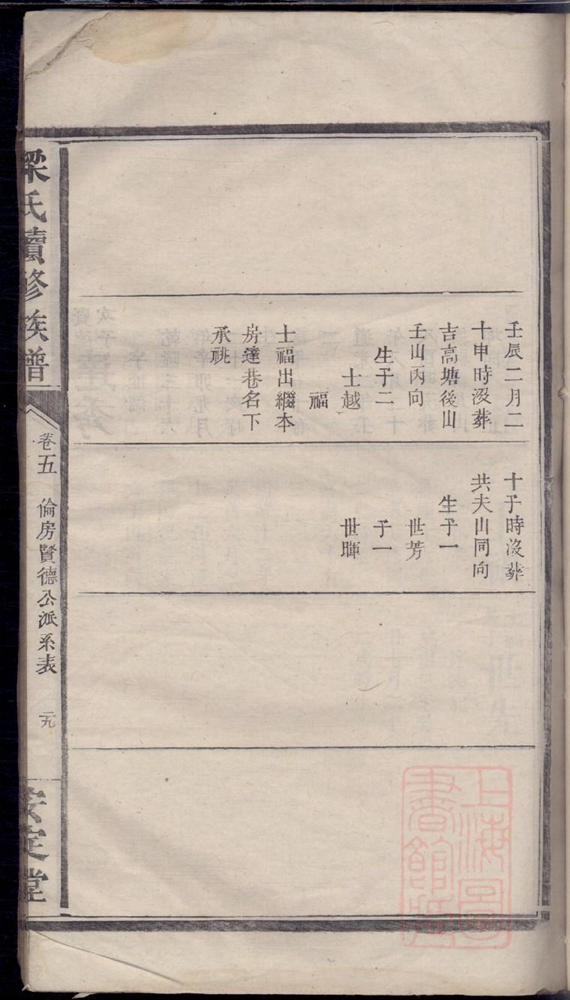 壬辰二月二
十申時沒葬
吉高塘後山
壬山丙向
生子二
士越
福
士福出繼本
房達巷名下
承祧
十子時沒葬
共夫山同向
生子一
世芳
子一
世暉
梁氏續修族譜
卷五
倫房賢德公派系表
二九
安定堂
上海圖書館藏